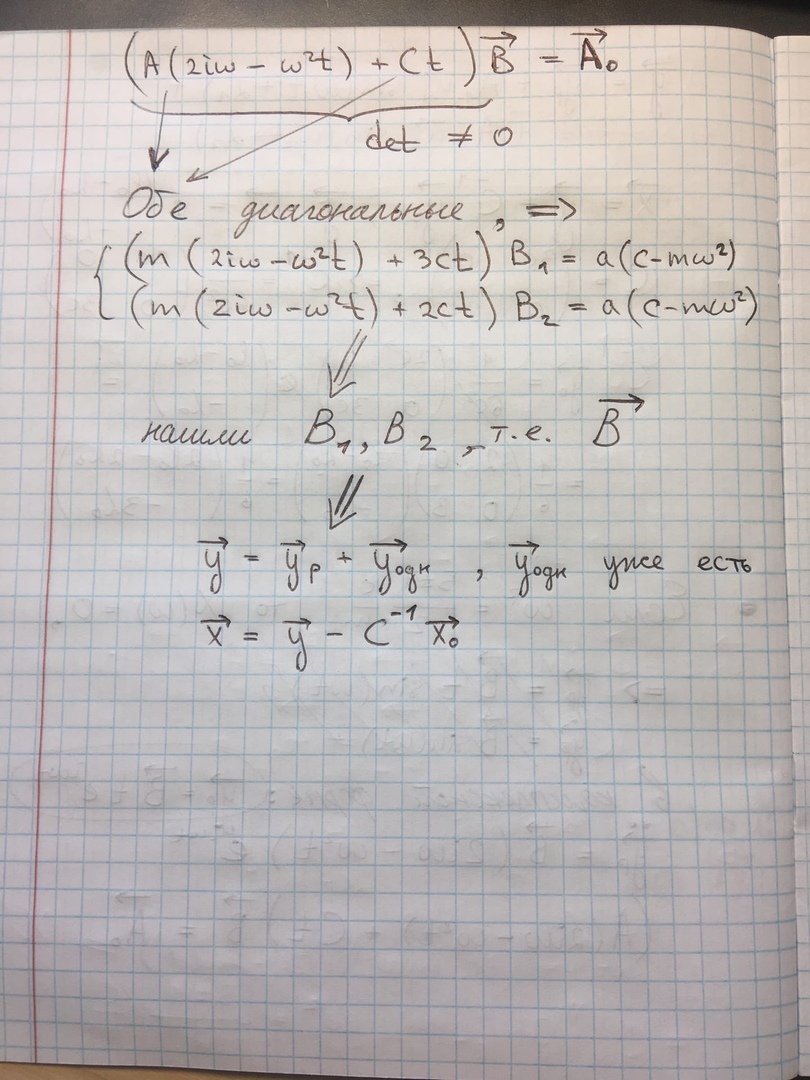 (A(2iω − ω²t) + Ct) B⃗ = A⃗₀
det ≠ 0
Обе диагональные, ⇒
{ (m (2iω − ω²t) + 3ct) B₁ = a(c − mω²)
(m (2iω − ω²t) + 2ct) B₂ = a(c − mω²)
нашли B₁, B₂, т.е. B⃗
y⃗ = y⃗ₚ + y⃗одн , y⃗одн уже есть
x⃗ = y⃗ − C⁻¹ x⃗₀